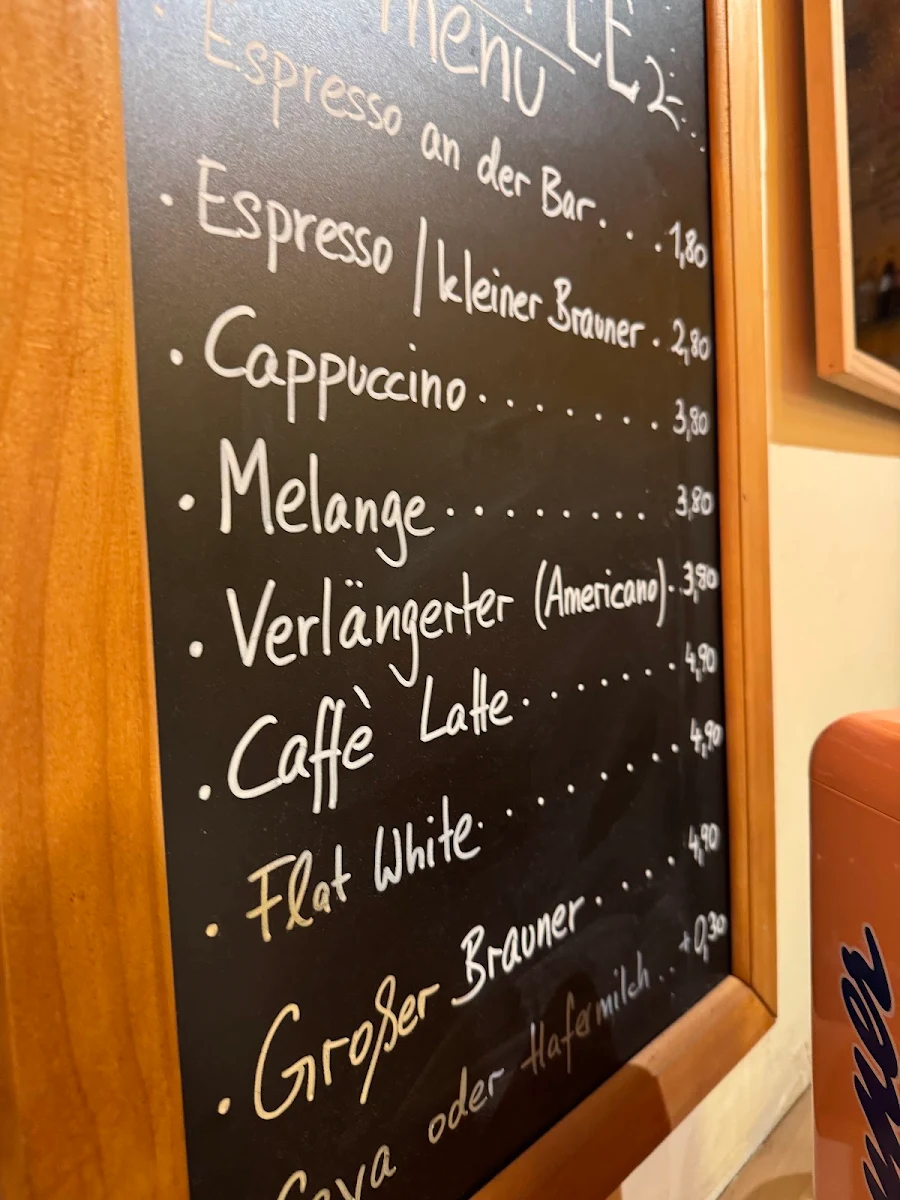 Menü
Espresso an der Bar. . . . 1,80
· Espresso / kleiner Brauner . 2,80
· Cappuccino . . . . . . . 3,80
· Melange . . . . . . . . . 3,80
· Verlängerter (Americano) . 3,80
· Caffè Latte . . . . . . . 4,90
· Flat White . . . . . . . . . 4,90
· Großer Brauner . . . . 4,90
Soya oder Hafermilch . . +0,30